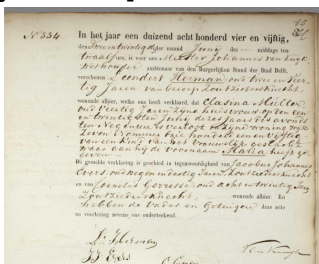 No 334
In het jaar een duizend acht honderd vier en vijftig,
den Twee en twintigsten der maand Junij des middags ten
twaalf ure, is voor ons Meester Johannes van Kuyk,
Wethouder ambtenaar van den Burgerlijken Stand der Stad Delft,
verschenen Leendert Herman oud twee en
tig Jaren van beroep Zoutziedersknecht,
wonende alhier, welke ons heeft verklaard, dat Clasina Muller,
oud Veertig Jaren zijne huisvrouw op den een
en twintigsten Junij dezes Jaars des avonds
ten Negen ure is verlost in zijne woning wijk
Zeven Nommer Vijf honderd een en Vijftig
van een Kind van het vrouwelijk geslacht
waar aan hij de voornaam gaf
geven
De gemelde verklaring is geschied in tegenwoordigheid van Jacobus Johannes
Evers oud negen en dertig Jaren, Zoutziedersknecht
en van Cornelis oud acht en twintig Jaren
Zoutziedersknecht wonende alhier. En
hebben de Vader en Getuigen deze acte
na voorlezing nevens ons onderteekend.
L. Herman
J J Evers